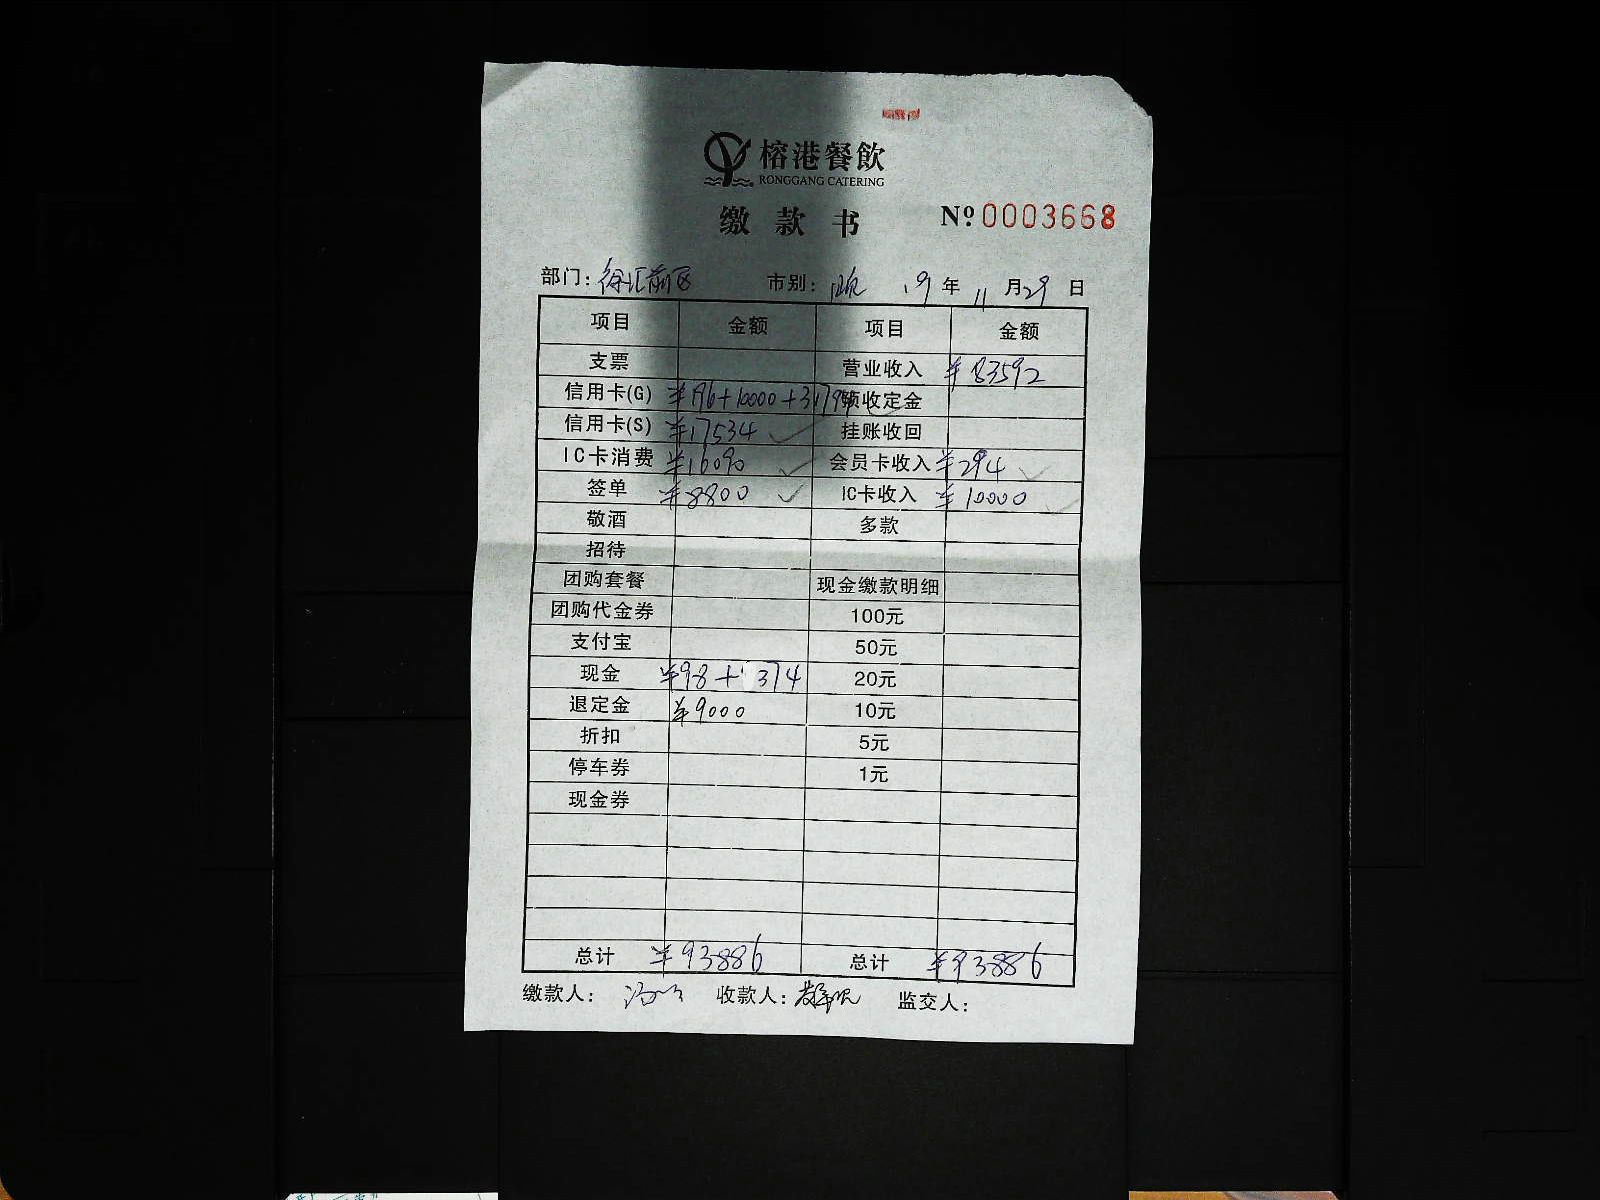 榕港餐飲
RONGGANG CATERING
缴款书 Nº 0003668
部门: 徐汇前区 市别: 19年 11月29日
项目 金额 项目 金额
支票 营业收入 ¥83592
信用卡(G) ¥196+10000+31794 预收定金
信用卡(S) ¥17534 挂账收回
IC卡消费 ¥16090 会员卡收入 ¥294
签单 ¥8800 IC卡收入 ¥10000
敬酒 多款
招待
团购套餐 现金缴款明细
团购代金券 100元
支付宝 50元
现金 ¥98+374 20元
退定金 ¥9000 10元
折扣 5元
停车券 1元
现金券
总计 ¥93886 总计 ¥93886
缴款人: 收款人: 监交人: